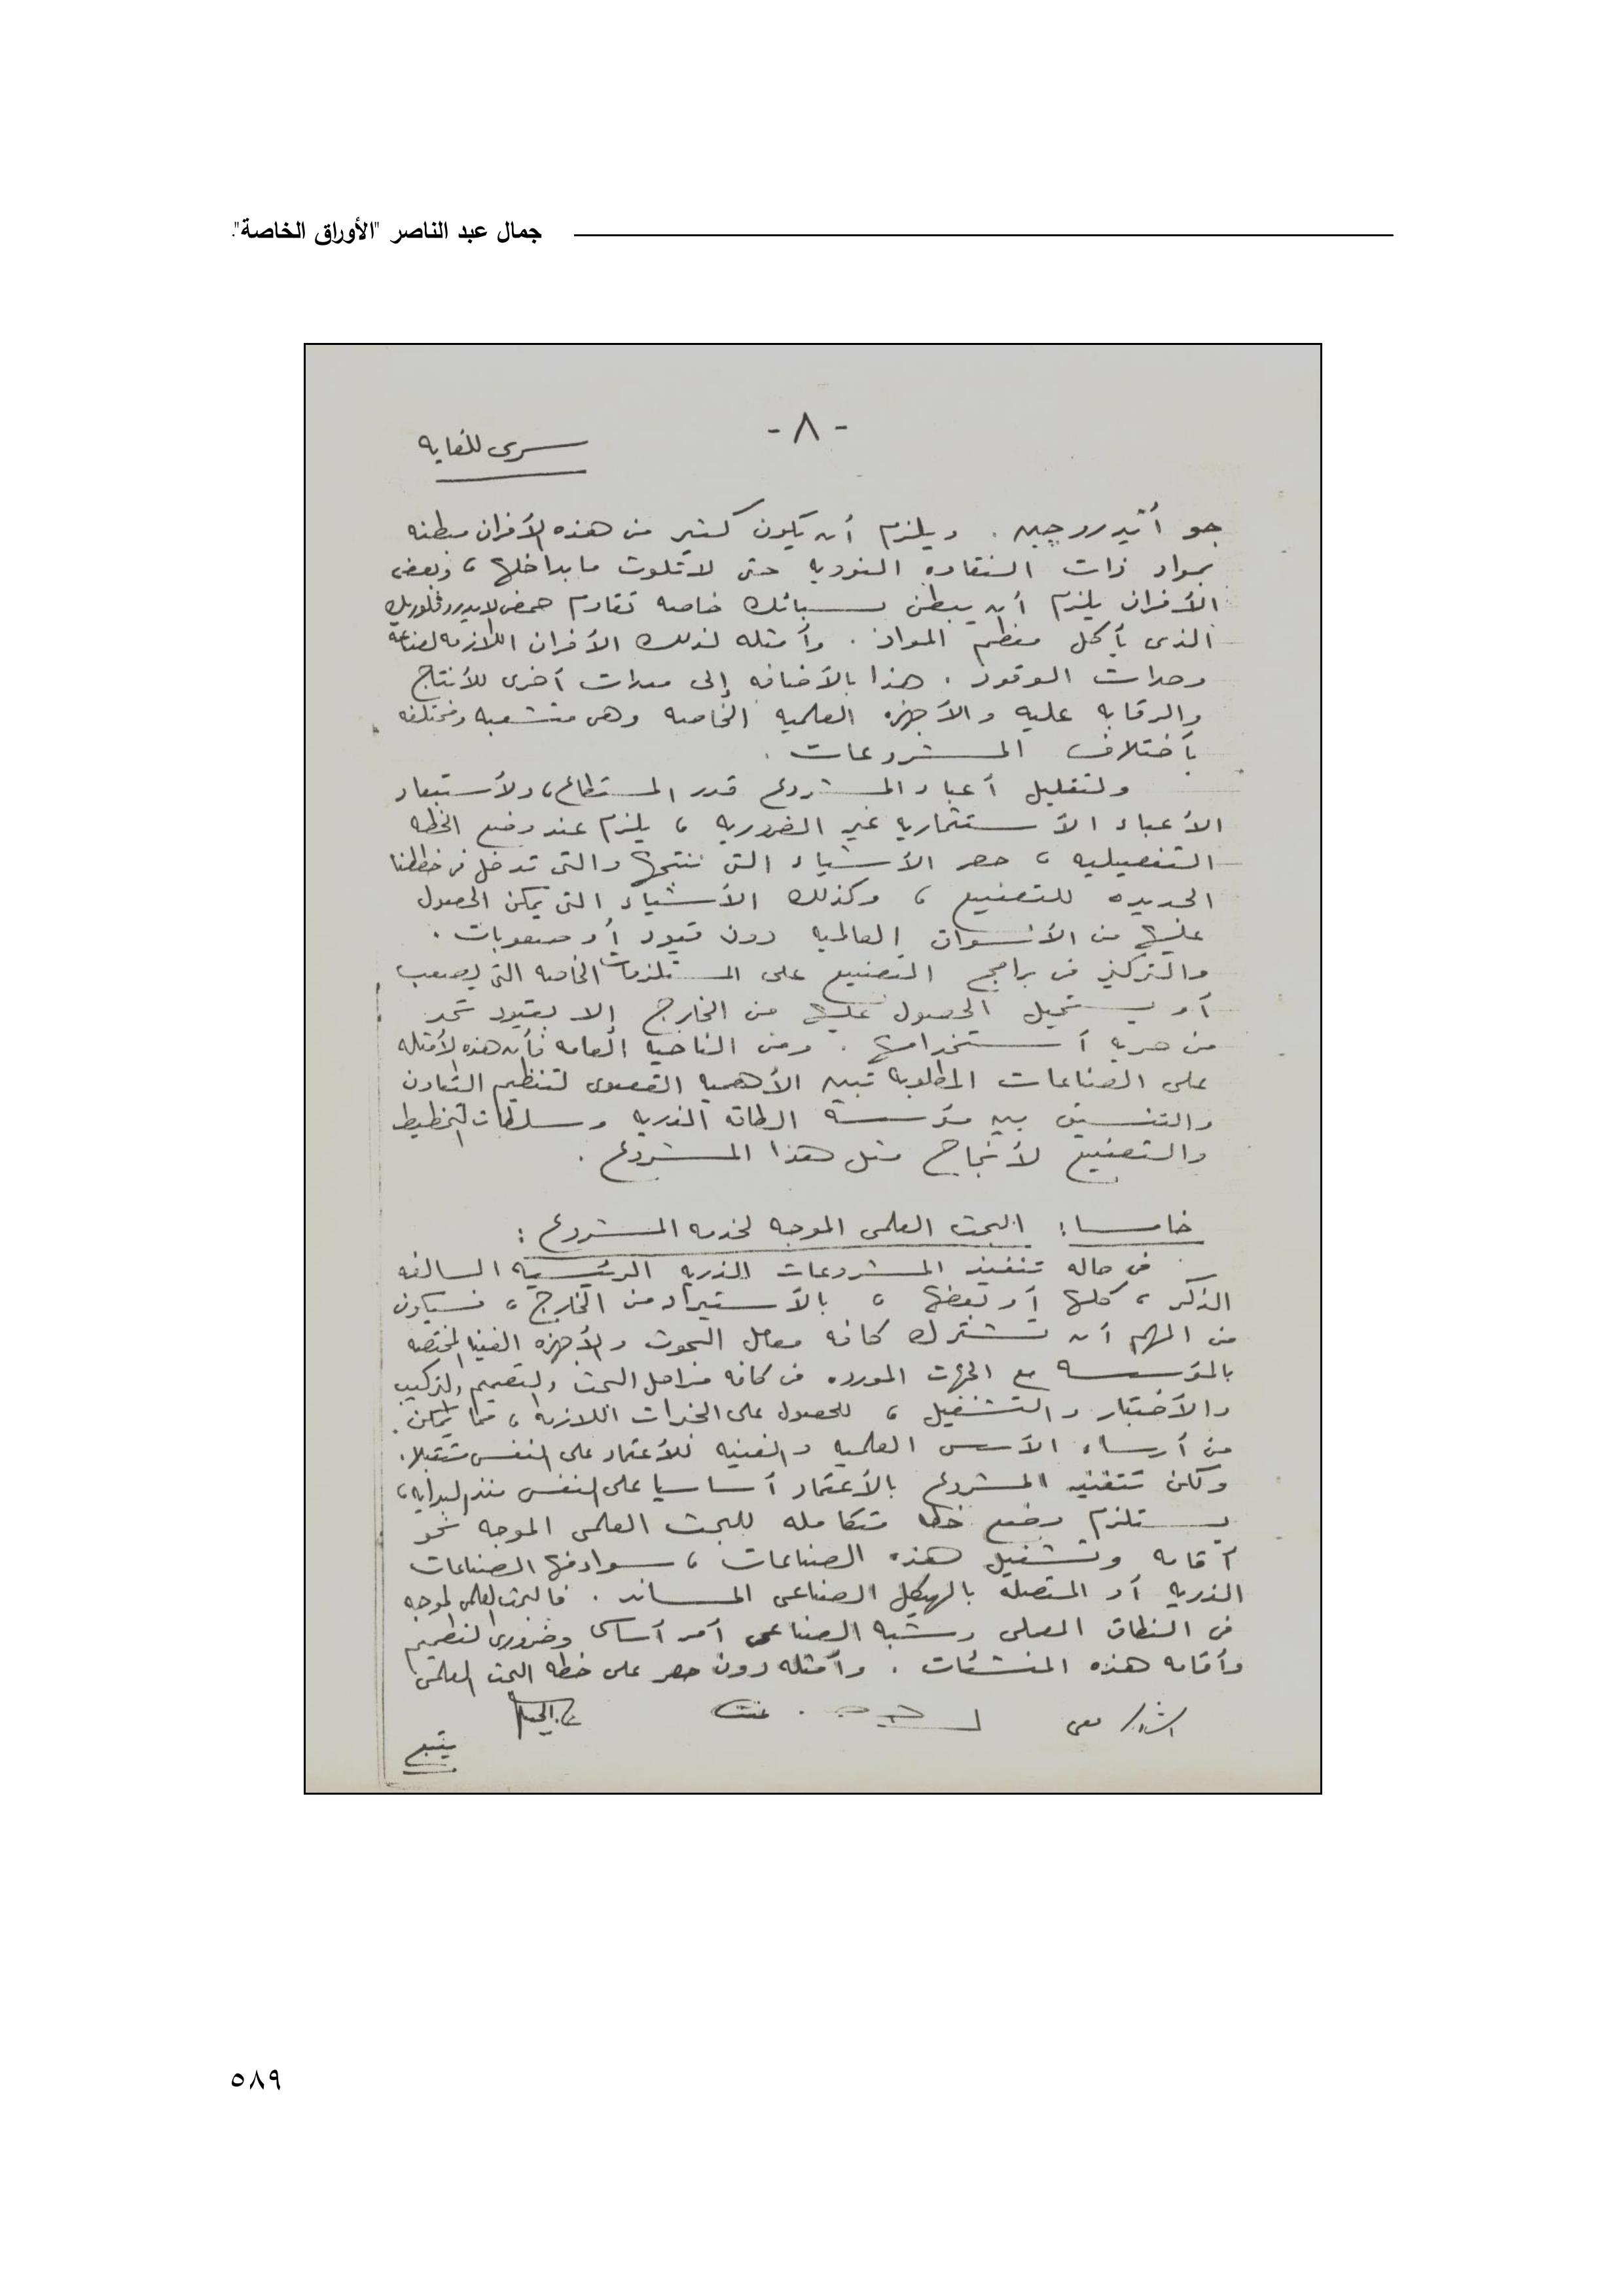 جمال عبد الناصر "الأوراق الخاصة".
- ٨ -
سرى للغايه
جو أيدروجين . ويلزم أن يكون كثير من هذه الأفران مبطنه
بمواد ذات النقاوه النوويه حتى لا تلوث ما بداخلها ، وبعض
الأفران يلزم أن يبطن بسبائك خاصه تقاوم حمض الايدروفلوريك
الذى يأكل معظم المواد . وأمثله لذلك الأفران اللازمه لصناعة
وحدات الوقود . هذا بالأضافه إلى معدات أخرى للأنتاج
والرقابه عليه والأجهزه العلميه الخاصه وهى متشعبه ومختلفه
بأختلاف المشروعات .
ولتقليل أعباء المشروع قدر المستطاع ، ولأستبعاد
الأعباء الأستثماريه غير الضروريه ، يلزم عند وضع الخطه
التفصيليه ، حصر الأشياء التى ننتجها والتى تدخل فى خططنا
الجديده للتصنيع ، وكذلك الأشياء التى يمكن الحصول
عليها من الأسواق العالميه دون قيود أو صعوبات .
والتركيز فى برامج التصنيع على المستلزمات الخاصه التى يصعب
أو يستحيل الحصول عليها من الخارج إلا بقيود تحد
من حريه أستخدامها . ومن الناحيه العامه فأن هذه الأمثله
على الصناعات المطلوبه تبين الأهميه القصوى لتنظيم التعاون
والتنسيق بين مؤسسة الطاقه الذريه وسلطات التخطيط
والتصنيع لأنجاح مثل هذا المشروع .
خامسا : البحث العلمى الموجه لخدمه المشروع :
فى حاله تنفيذ المشروعات الذريه الرئيسيه السالفه
الذكر ، كلها أو بعضها ، بالأستيراد من الخارج ، فسيكون
من المهم أن تشترك كافه معامل البحوث والأجهزه الفنيه المختصه
بالمؤسسه مع الجهات المورده فى كافه مراحل البحث والتصميم والتركيب
والأختبار والتشغيل ، للحصول على الخبرات اللازمه ، مما يمكن
من أرساء الأسس العلميه والفنيه للأعتماد على النفس مستقبلا .
ولكن تنفيذ المشروع بالأعتماد أساسيا على النفس منذ البدايه ،
يستلزم وضع خطه متكامله للبحث العلمى الموجه نحو
أقامه وتشغيل هذه الصناعات ، سواء منها الصناعات
الذريه أو المتصله بالهيكل الصناعى المساند . فالبحث العلمى الموجه
فى النطاق المعملى وشبه الصناعى أمر أساسى وضرورى لتصميم
وأقامه هذه المنشئات . وأمثله دون حصر على خطه البحث العلمى
يتبع
٥٨٩